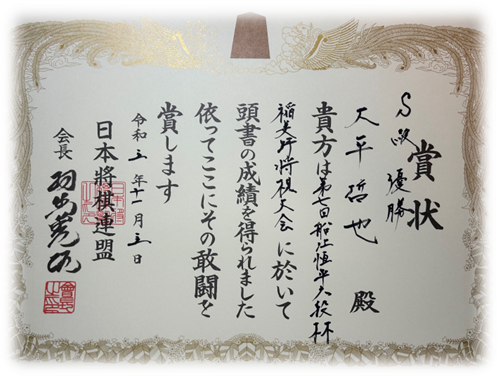 賞状
S級 優勝
大平哲也 殿
貴方は第七回船江恒平六段杯
稲美町将棋大会に於いて
頭書の成績を得られました
依ってここにその敢闘を
賞します
令和五年十一月五日
日本將棋連盟
会長 羽生善治